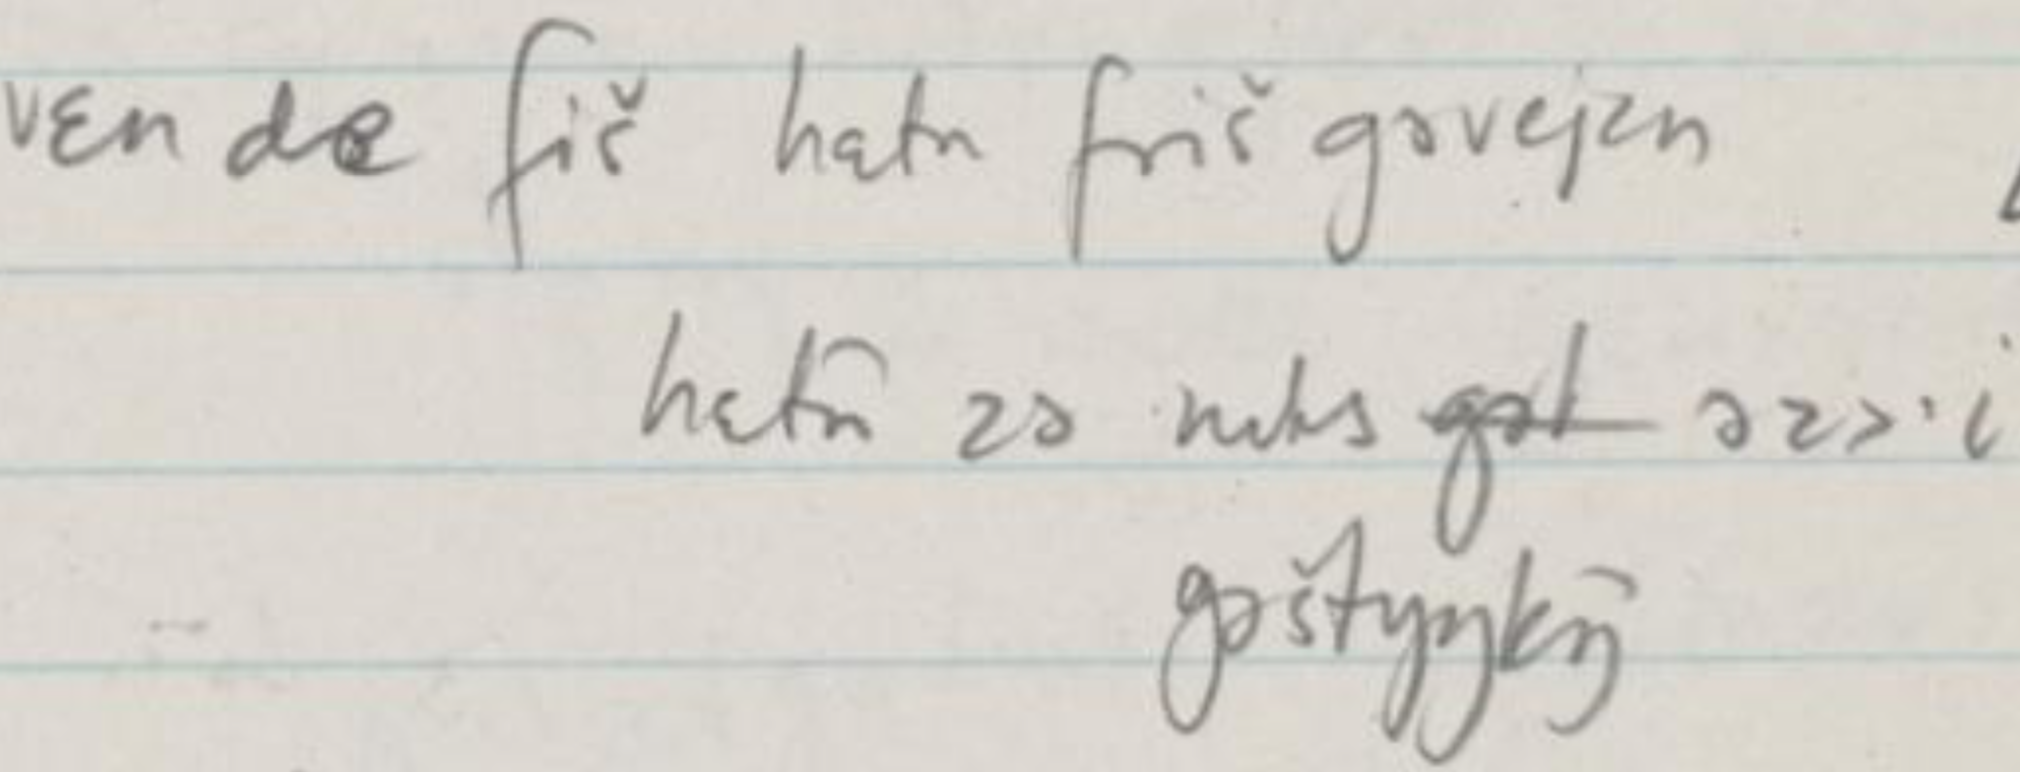 vɛn de fiš hɛtn friš gəvejzn
hɛtn̄ zə niks gət əzɔi
gəštuŋkŋ̄